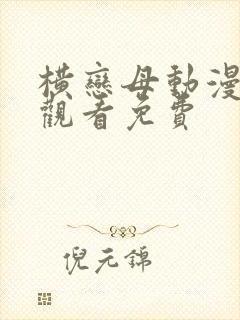 橫戀母動漫
觀看免費
倪元錦